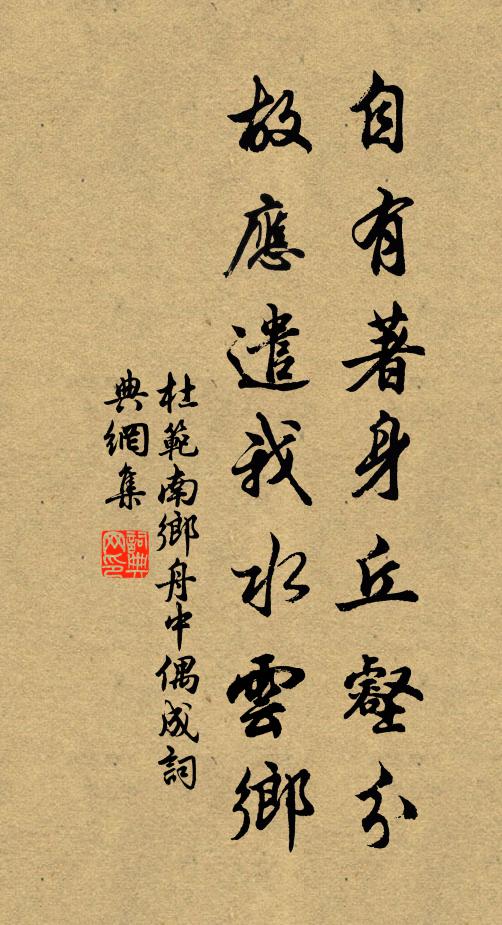 自有著身丘壑分
故應遣我水雲鄉
杜範南鄉舟中偶成詞
典網集
詞典
网印